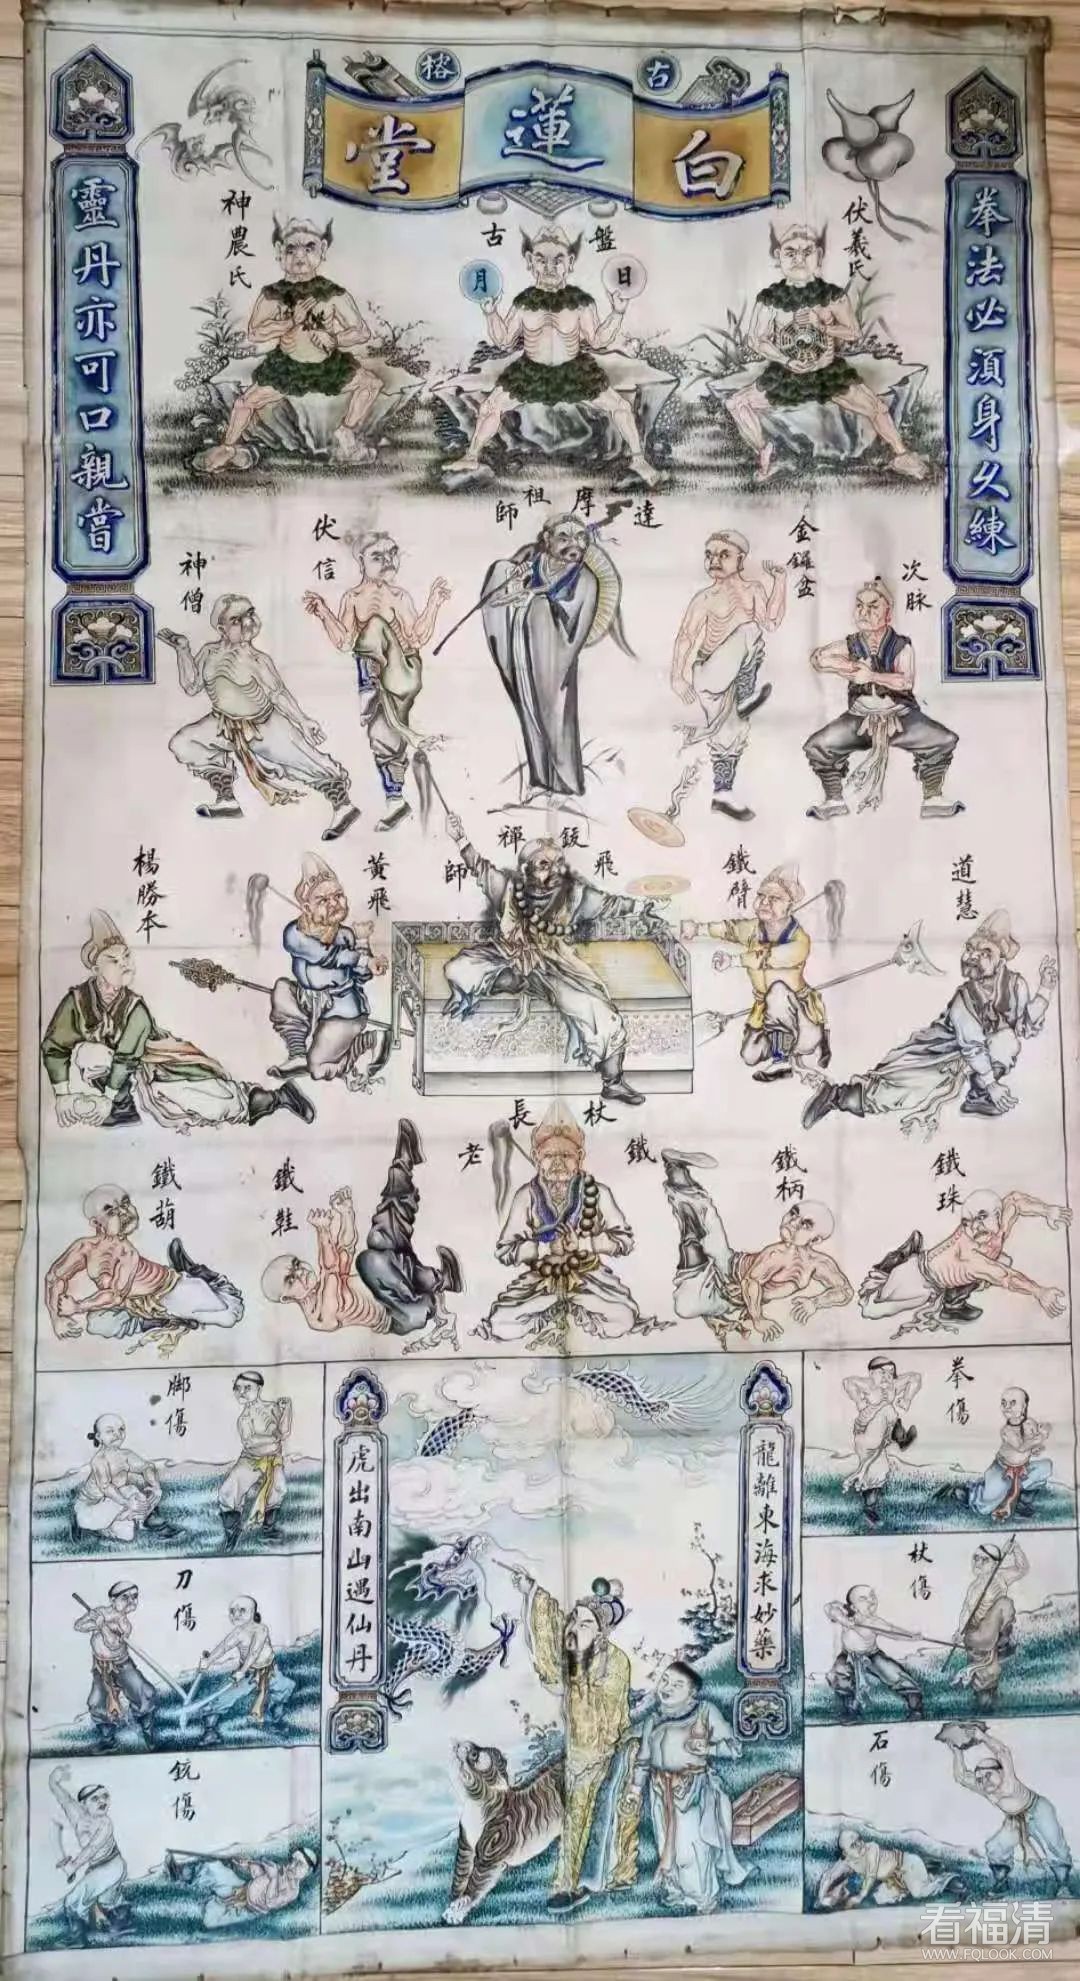 古榕
白蓮堂
拳法必須身久練
靈丹亦可口親嘗
伏羲氏
盤古
日
月
神農氏
達摩祖師
次脉
金鑼盆
伏信
神僧
飛鈸禪師
道慧
鐵臂
黃飛
楊勝本
鐵杖長老
鐵珠
鐵柄
鐵鞋
鐵葫
拳傷
杖傷
石傷
龍離東海求妙藥
虎出南山遇仙丹
脚傷
刀傷
銃傷
看福清
WWW.FQLOOK.COM